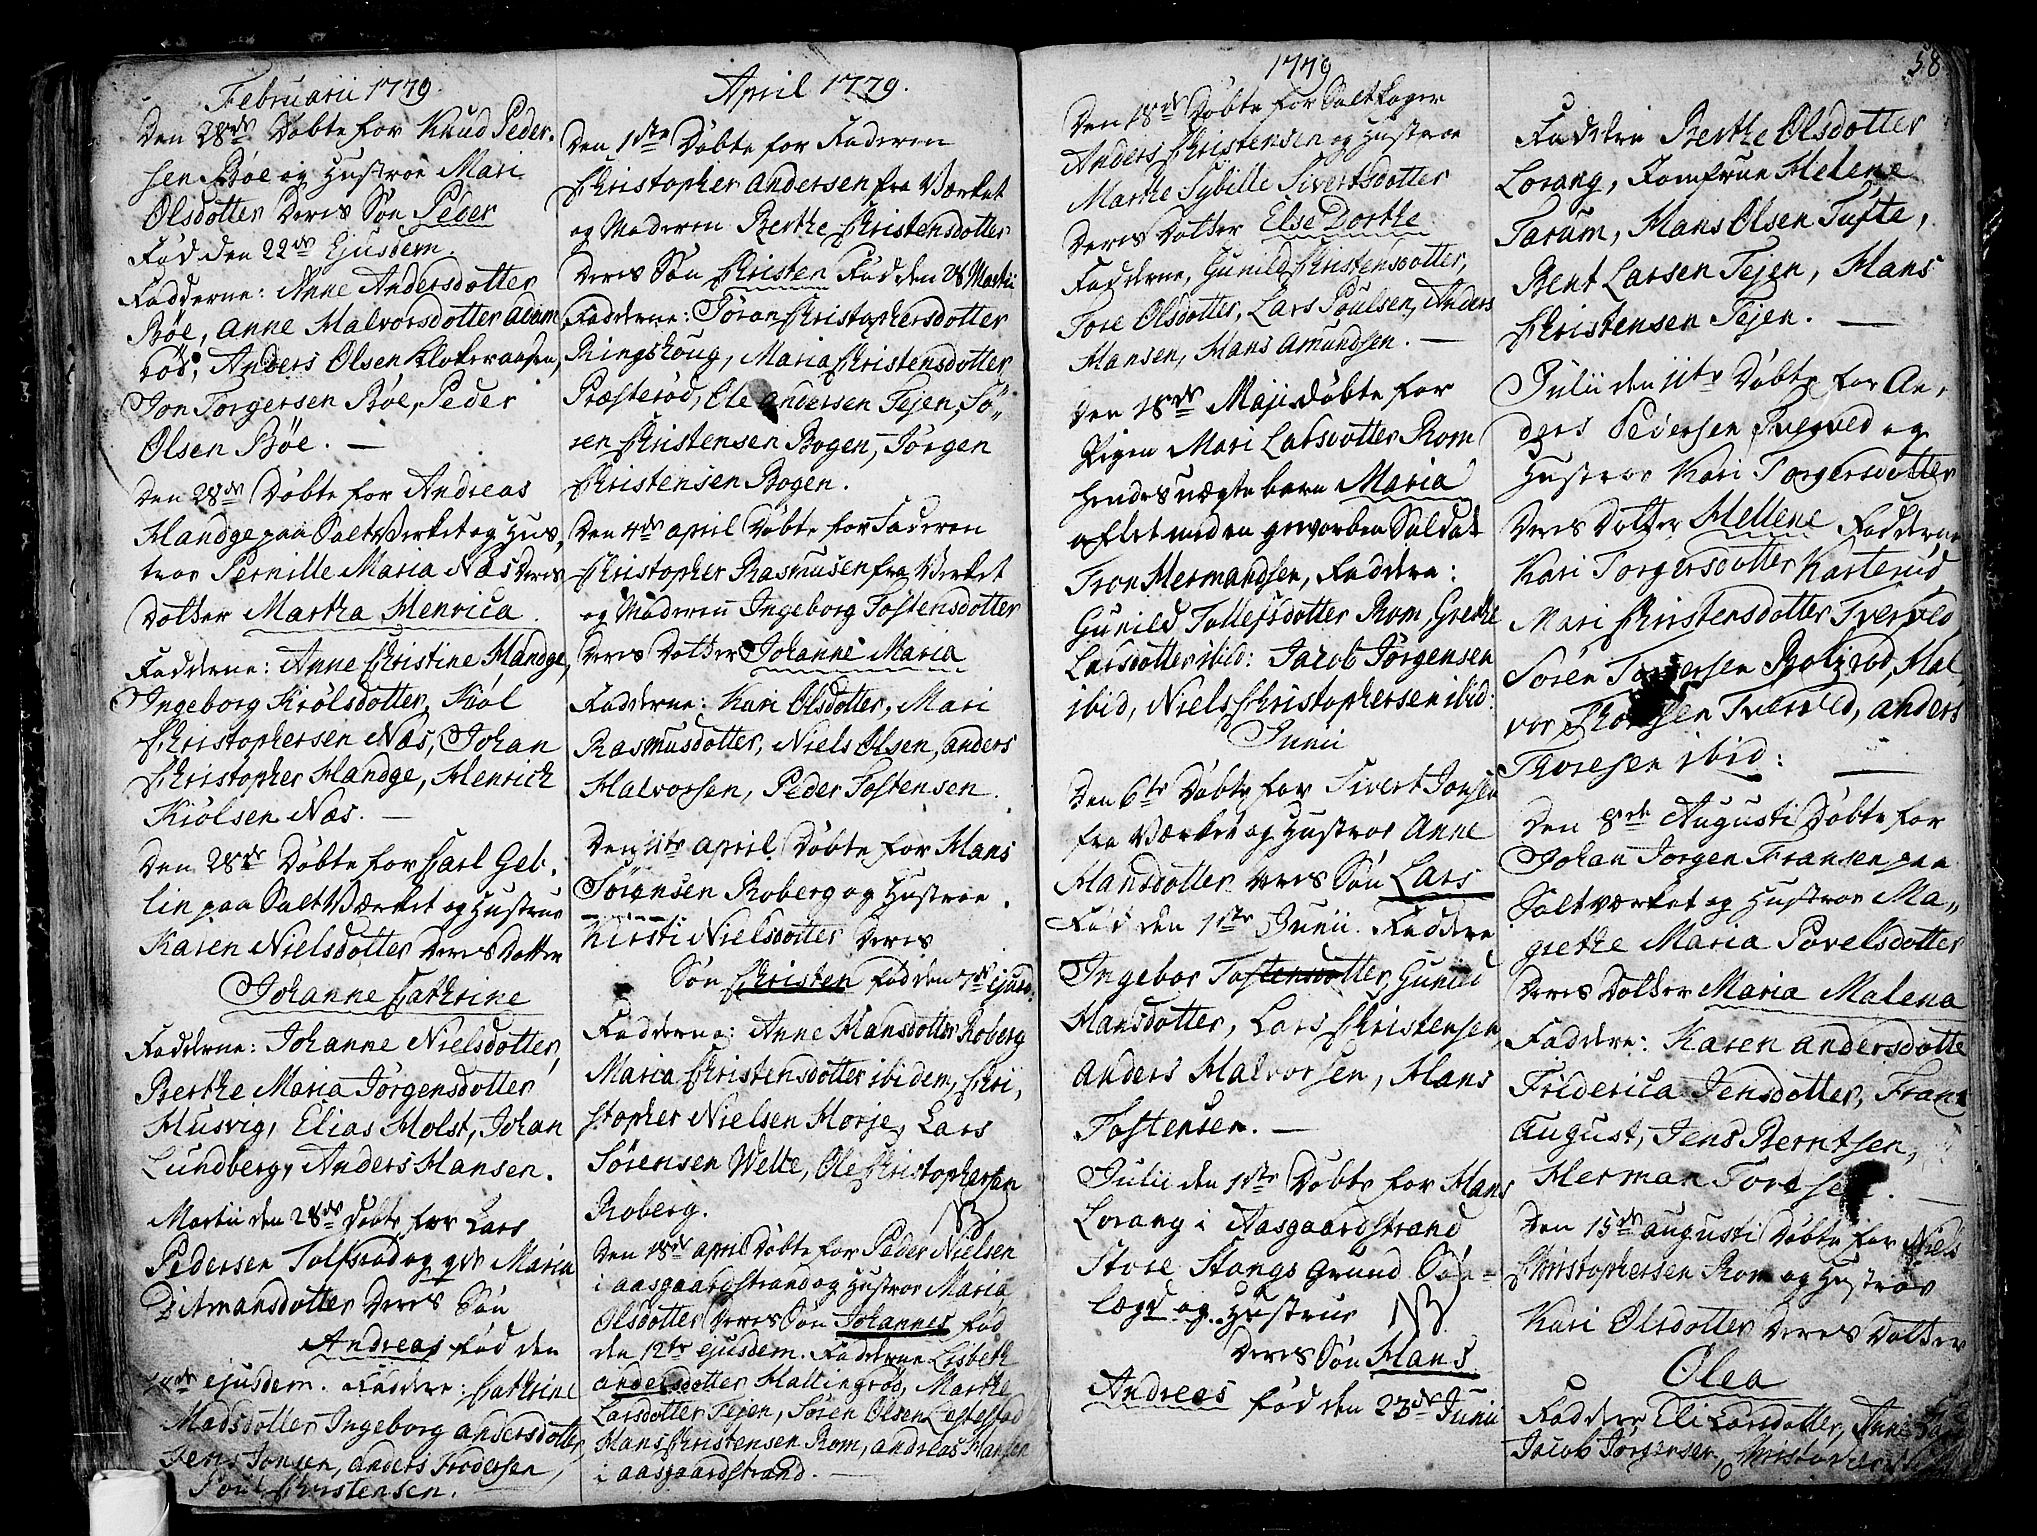 Februarii 1779.
Den 28de Döbte for Knud Peder-
sen Böe og Hustroe Mari
Olsdotter Deres Sön Peder
Föd den 22de Ejusdem.
Fadderne: Anne Andersdotter
Böe, Anne Halvorsdotter Adam
röd, Anders Olsen Klokeraasen,
Jon Torgersen Böe, Peder
Olsen Böe. —
Den 28de Döbte for Andreas
Handge paa Salt Verket og Hus,
troe Pernille Maria Næs deres
Dotter Martha Henrica.
Fadderne: Anne Christine Handge,
Ingeborg Kiölsdotter, Kiöl
Christophersen Næs, Johan
Christopher Handge, Henrich
Kiölsen Næs. —
Den 28de Döbte for Carl Geb,
lin paa Salt Værket og Hustrue
Karen Nielsdotter Deres Dotter
Johanne Cathrine
Fadderne: Johanne Nielsdotter,
Berthe Maria Jörgensdotter
Husvig, Elias Holst, Johan
Lundberg, Anders Hansen.
Martii den 28de Döbte for Lars
Pedersen Tolfsröd og Maria
Ditmansdotter Deres Sön
Andreas föd den
ejusdem. Faddere: Cathrine
Madsdotter Ingeborg Andersdotter,
Jens Jonsen, Anders Frodersen,
Poul Christensen.
April 1779.
Den 1ste Döbte for Faderen
Christopher Andersen fra Værket
og Moderen Berthe Christensdotter
Deres Sön Christen Föd den 28 Martii
Fadderne: Töran Christophersdotter
Ringshoug, Maria Christensdotter
Præsteröd, Ole Andersen Fejen, Sö,,
ren Christensen Bogen, Jörgen
Christensen Bogen.
Den 4de April Döbte for Faderen
Christopher Rasmusen fra Verket
og Moderen Ingeborg Tostensdotter
Deres Dotter Johanne Maria
Fadderne: Kari Olsdotter, Mari
Rasmusdotter, Niels Olsen, Anders
Halvorsen, Peder Tostensen.
Den 11te April Döbte for Hans
Sörensen Roberg og Hustroe.
Kirsti Nielsdotter Deres
Sön Christen föd den 7de Ejusd.
Fadderne: Anne Hansdotter Roberg
Maria Christensdotter ibidem, Chri,
stopher Nielsen Horje, Lars
Sörensen Welle, Ole Christophersen
Roberg.
NB
Den 18de April Döbte for Peder Nielsen
i Aasgaardstrand og Hustroe Maria
Olsdotter Deres Sön Johannes föd
den 12te ejusdem. Fadderne Lisbeth
Andersdotter Hallingröd, Marthe
Larsdotter Fejen, Sören Olsen Lefsestad
Hans Christensen Rom, Andreas Hansen
i Aasgaardstrand. —
1779
Den 18de Döbte for Saltkoger
Anders Christensen og Hustroe
Marthe Sybille Sivertsdotter
Deres Dotter Else Dorthe
Fadderne, Gunild Christensdotter,
Tore Olsdotter, Lars Poulsen, Anders
Hansen, Hans Amundsen. —
Den 18de Maji Döbte for
Pigen Mari Larsdotter Rom
hendes uægte barn Maria
aflet med en gevorben Soldat
Tron Hermandsen, Faddere:
Gunild Tollefsdotter Rom, Grethe
Larsdotter ibid: Jacob Jörgensen
ibid, Niels Christophersen ibid:
Junii
Den 6te Döbte for Sivert Jonsen
fra Værket og Hustroe Anne
Hansdotter Deres Sön Lars
Föd den 1ste Junii. Faddere
Ingebor Tostensdotter, Gunild
Hansdotter, Lars Christensen,
Anders Halvorsen, Hans
Tostensen. —
Julii den 1ste Döbte for Hans
Lorang i Aasgaardstrand
Store Stangs Grund Söe-
lægd og Hustrue NB
Deres Sön Hans
Andreas föd den 23de Junii
58
Faddere Berthe Olsdotter
Lorang, Jomfrue Helene
Tarum, Hans Olsen Tufte,
Bent Larsen Fejen, Hans
Christensen Fejen. —
Julii den 11te Döbte for An,
ders Pedersen Tverved og
Hustroe Kari Torgersdotter
Deres Dotter Hellene Fadderne
Kari Torgersdotter Karterud
Mari Christensdotter Tverved,
Sören Bolzrod, Hal,
vor Tverved, Anders
Thoresen ibid: —
Den 8de Augusti Döbte for
Johan Jörgen Fransen paa
Saltværket og Hustroe Ma,,
grethe Maria Povelsdotter
Deres Dotter Maria Malena
Faddere: Karen Andersdotte
Friderica Jensdotter, Frans
August, Jens Berntsen,
Herman Toresen. —
Den 15de Augusti Döbte for Niels
Christophersen Rom og Hustroe
Kari Olsdotter Deres Dotter
Olea
Faddere Eli Larsdotter, Anne
Jacob Jörgensen,